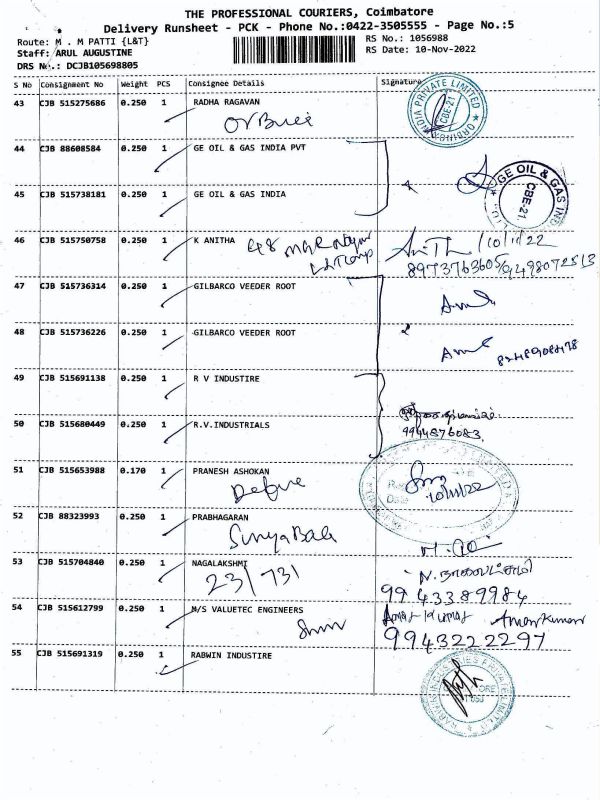 THE PROFESSIONAL COURIERS, Coimbatore
Delivery Runsheet - PCK - Phone No.:0422-3505555 - Page No.:5
Route: M . M PATTI {L&T}
RS No.: 1056988
Staff: ARUL AUGUSTINE
RS Date: 10-Nov-2022
DRS No.: DCJB105698805
S No Consignment No Weight PCS Consignee Details Signature
43 CJB 515275686 0.250 1 RADHA RAGAVAN
INDIA PRIVATE LIMITED
CBE-21
44 CJB 88608584 0.250 1 GE OIL & GAS INDIA PVT
GE OIL & GAS IND
CBE-21
45 CJB 515738181 0.250 1 GE OIL & GAS INDIA
46 CJB 515750758 0.250 1 K ANITHA
48 MGR Nagar
Anith 10/11/22
8973763605/9498072513
47 CJB 515736314 0.250 1 GILBARCO VEEDER ROOT
48 CJB 515736226 0.250 1 GILBARCO VEEDER ROOT
49 CJB 515691138 0.250 1 R V INDUSTIRE
50 CJB 515680449 0.250 1 R.V.INDUSTRIALS
9944876083
51 CJB 515653988 0.170 1 PRANESH ASHOKAN
10/11/22
52 CJB 88323993 0.250 1 PRABHAGARAN
Surya Bala
53 CJB 515704840 0.250 1 NAGALAKSHMI
23/731
N. நாகலட்சுமி
9943389984
54 CJB 515612799 0.250 1 M/S VALUETEC ENGINEERS
Aman Kumar
9943222297
55 CJB 515691319 0.250 1 RABWIN INDUSTIRE